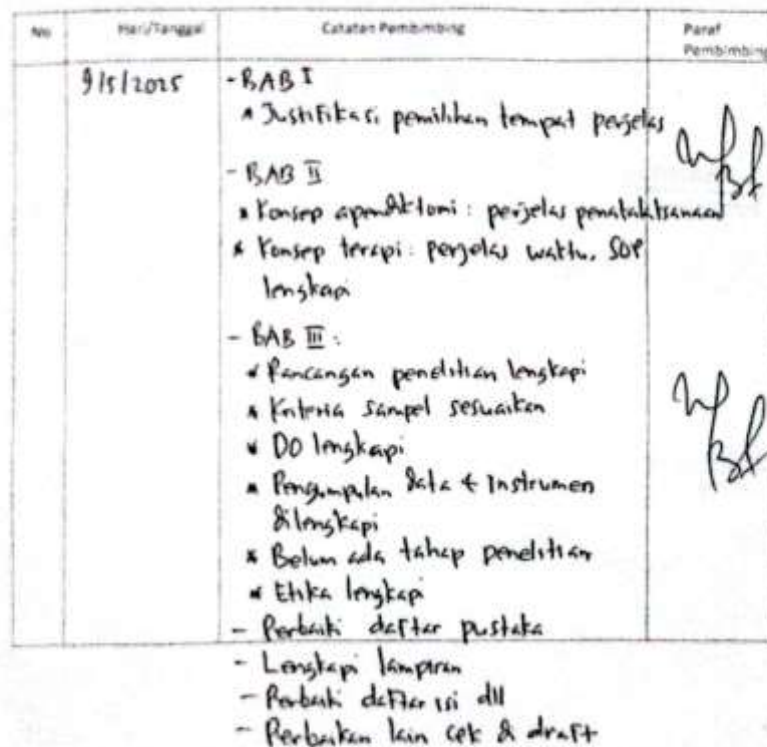 No Hari/Tanggal Catatan Pembimbing Paraf
Pembimbing
9/5/2025
- BAB I
* Justifikasi pemilihan tempat perjelas
- BAB II
* Konsep apendiktomi : perjelas penatalaksanaan
* Konsep terapi : perjelas waktu, SOP
lengkapi
- BAB III :
* Rancangan penelitian lengkapi
* Kriteria sampel sesuaikan
* DO lengkapi
* Pengumpulan data & Instrumen
dilengkapi
* Belum ada tahap penelitian
* Etika lengkapi
- Perbaiki daftar pustaka
- Lengkapi lampiran
- Perbaiki daftar isi dll
- Perbaikan lain cek di draft